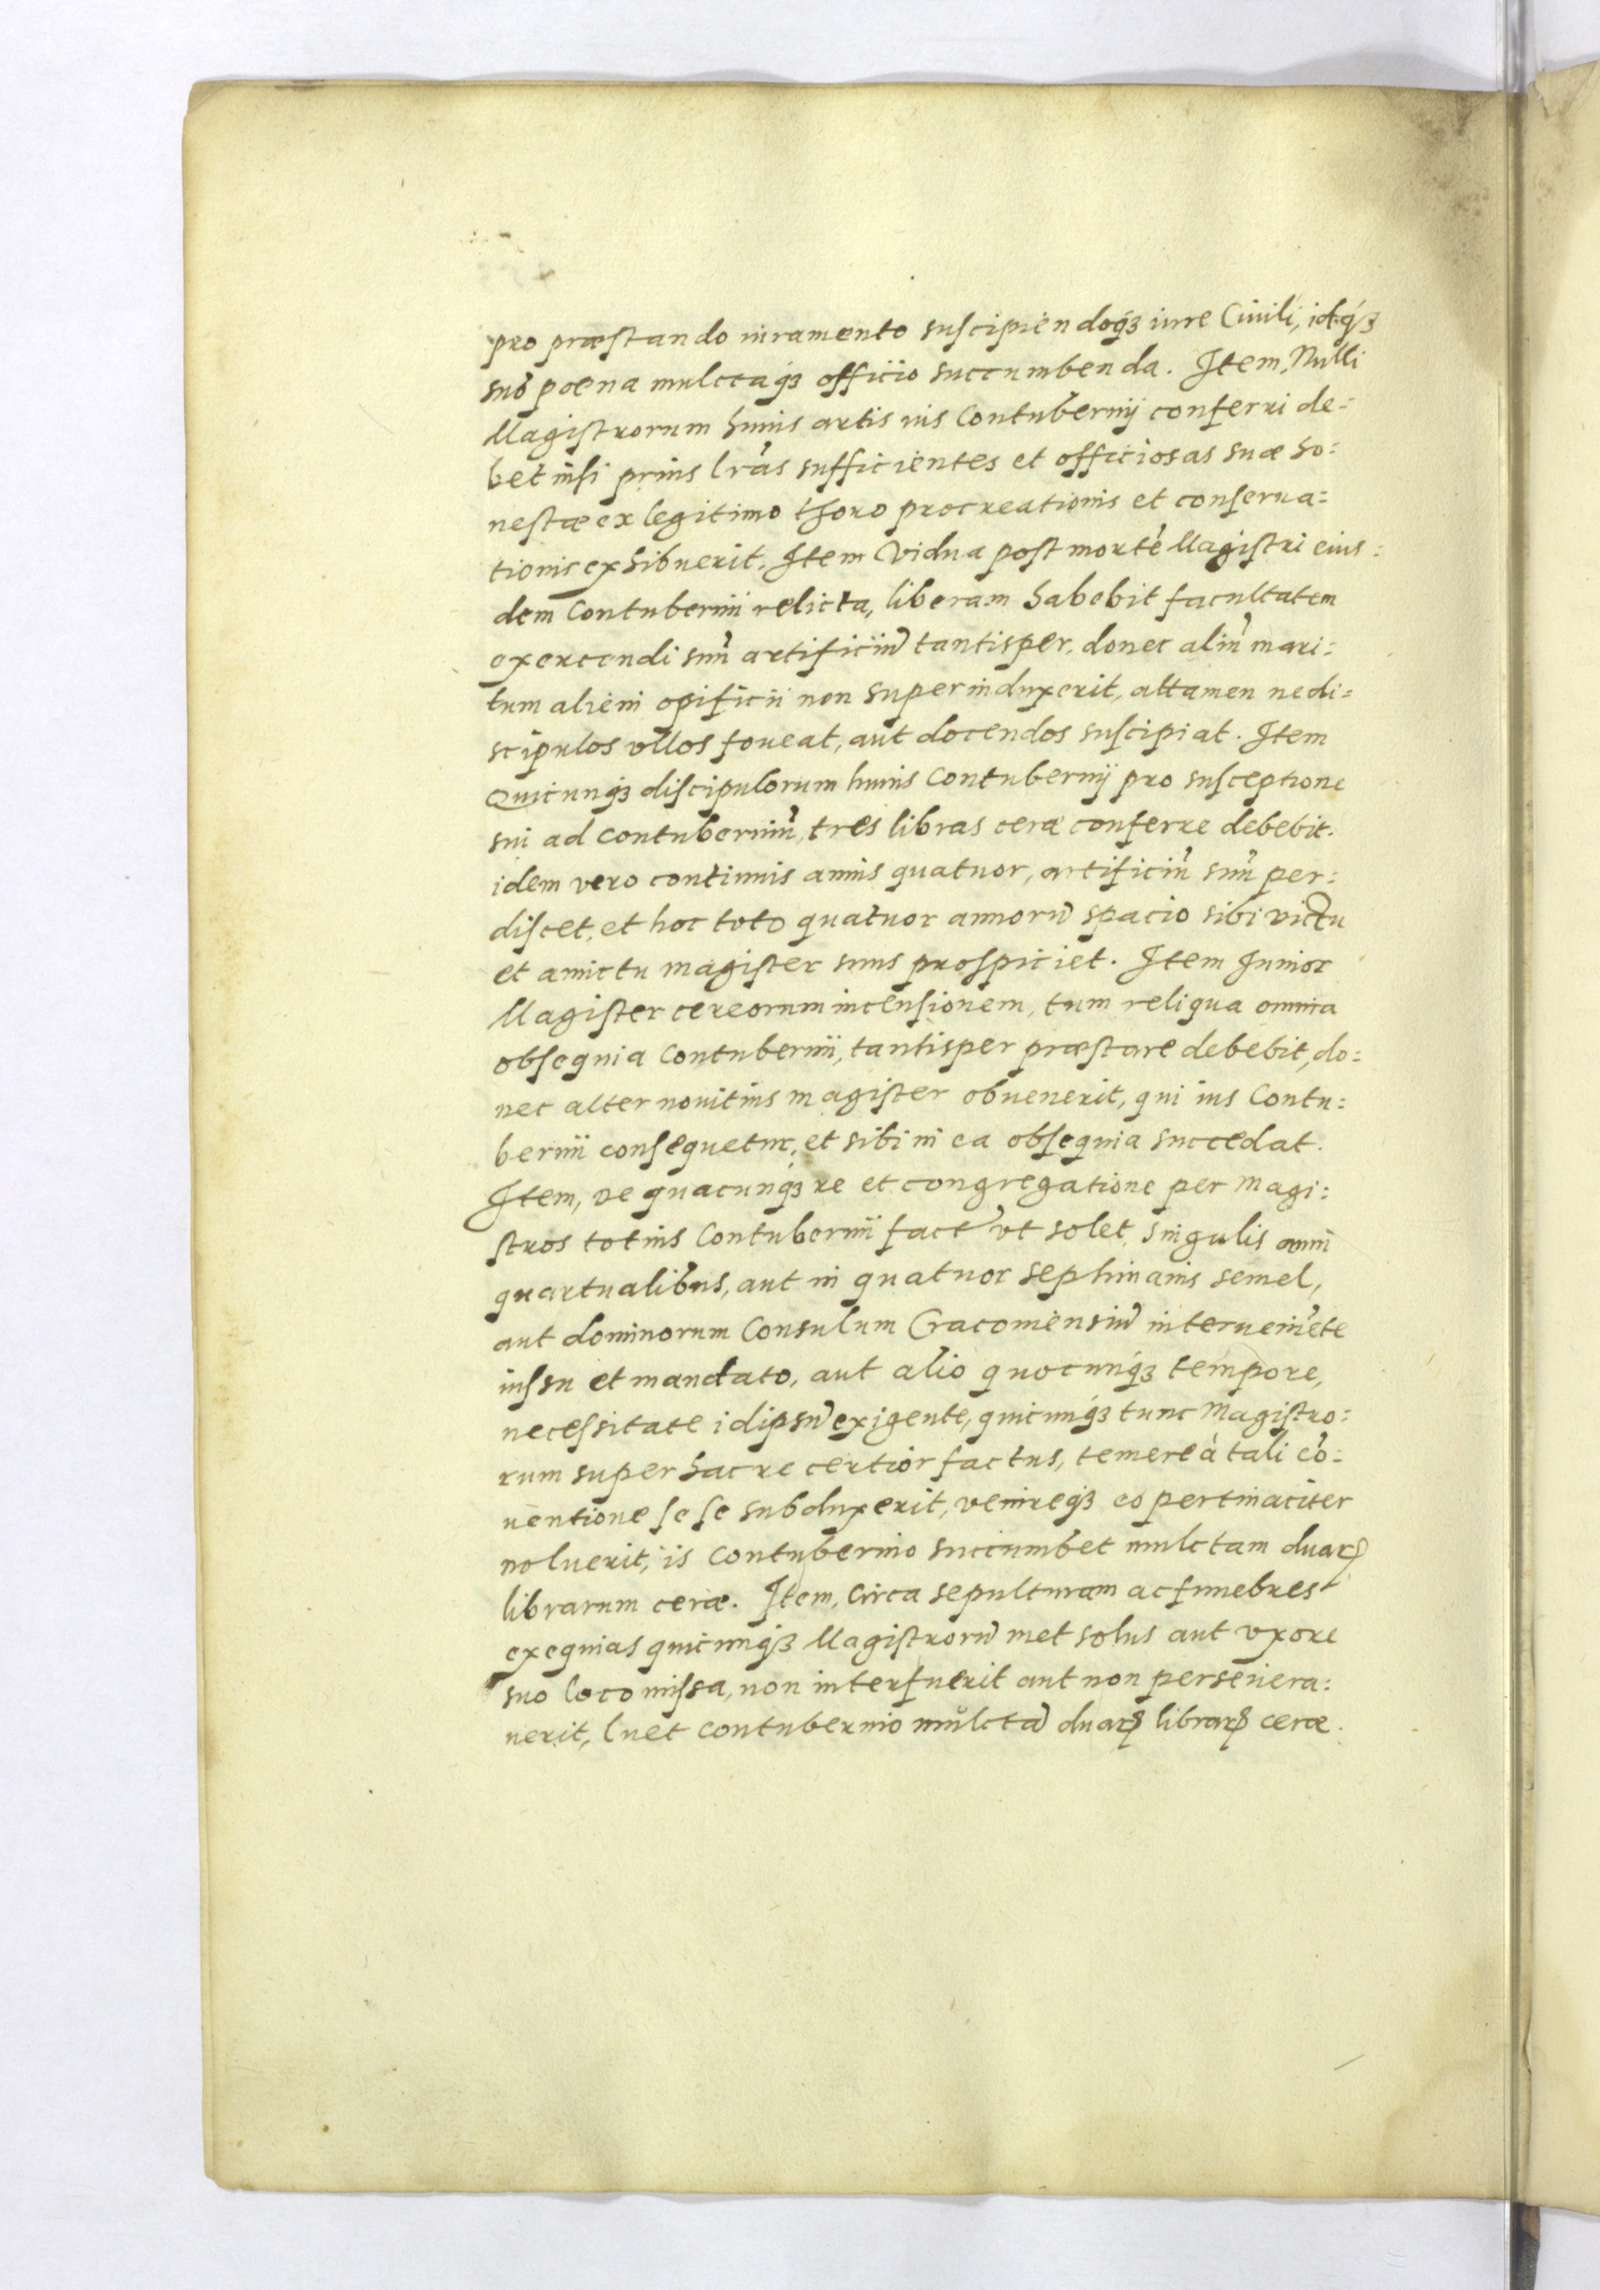 pro præstando iuramento suscipiendoq́ꝫ iure Ciuili, idq́ꝫ
sub poena mulctaq́ꝫ officio succumbenda. Item, Nulli
Magistrorum huius artis ius Contubernij conferri de=
bet nisi prius l̃ras sufficientes et officiosas suæ ho=
nestæ ex legitimo thoro procreationis et conserua=
tionis exhibuerit. Item Vidua post mortẽ Magistri eius=
dem Contubernii relicta, liberam habebit facultatem
exercendi suũ artificiũ tantisper, donec aliũ mari=
tum alieni opificii non superinduxerit, attamen ne di=
scipulos vllos foueat, aut docendos suscipiat. Item
Quicunq́ꝫ discipulorum huius Contubernij pro susceptione
sui ad Contuberniũ, tres libras ceræ conferre debebit.
idem vero continuis annis quatuor, artificiũ suũ per=
discet, et hoc toto quatuor annorũ spacio sibi victu
et amictu magister suus prospiciet. Item Junior
Magister cereorum incensionem, tum reliqua omnia
obsequia Contubernii, tantisper præstare debebit, do=
nec alter nouitius magister obuenerit, qui ius Contu=
bernii consequetur, et sibi in ea obsequia succedat.
Item, De quacunq́ꝫ re et congregatione per Magi=
stros totius Contubernii fact̃ vt solet, singulis anni
quartualibus, aut in quatuor sephimanis semel,
aut dominorum Consulum Cracouiensiũ interueniẽte
iussu et mandato, aut alio quocunq́ꝫ tempore,
necessitate idipsũ exigente, quicunq́ꝫ tunc Magistro=
rum super hac re certior factus, temere à tali cõ=
uentione se se subduxerit, venireq́ꝫ eo pertinaciter
noluerit, is Contubernio succumbet mulctam duarꝝ
librarum ceræ. Item, Circa sepulturam ac funebres
exequias quicunq́ꝫ Magistrorũ met solus aut vxore
suo loco missa, non interfuerit aut non perseuera=
uerit, luet contubernio mulctã duarꝝ librarꝝ ceræ.